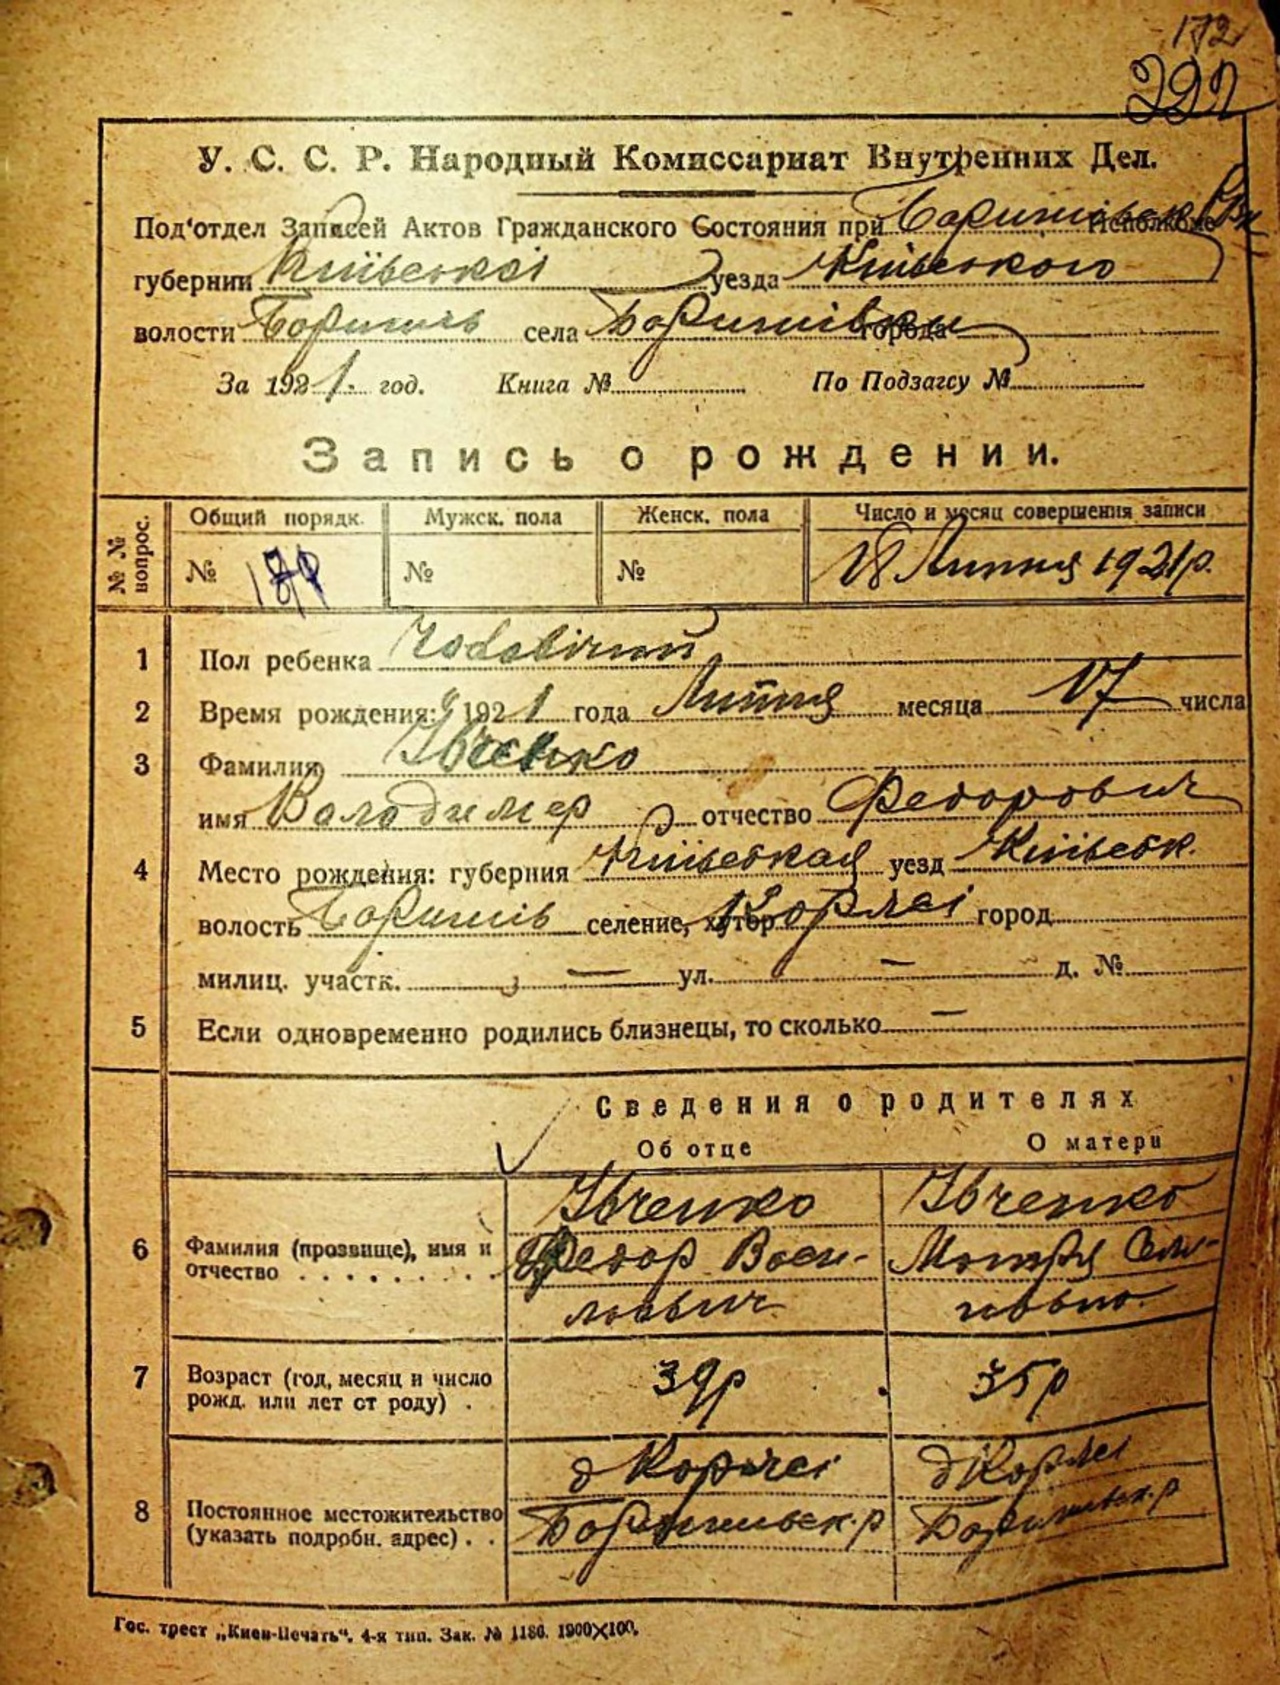 172
292
У. С. С. Р. Народный Комиссариат Внутренних Дел.
Под'отдел Записей Актов Гражданского Состояния при Исполкоме
губернии Київської уезда Київського
волости Бориспіль села города
За 1921. год. Книга № По Подзагсу №
Запись о рождении.
№ № вопрос.
Общий порядк. Мужск. пола Женск. пола Число и месяц совершения записи
№ № № 18 Липня 1921р.
1 Пол ребенка Чоловічий
2 Время рождения: 1921 года Липня месяца 17 числа
3 Фамилия Івченко
имя Володимер отчество Федорович
4 Место рождения: губерния Київськая уезд Київськ.
волость Бориспіль селение, хутор город
милиц. участк. — ул. — д. №
5 Если одновременно родились близнецы, то сколько —
Сведения о родителях
Об отце О матери
Івченко Івченко
6 Фамилия (прозвище), имя и отчество Федор Васи- Мотря
льович
7 Возраст (год, месяц и число рожд. или лет от роду) . 39р 35р
8 Постоянное местожительство (указать подробн. адрес) . .
Гос. трест „Киев-Печать“. 4-я тип. Зак. № 1186. 1900×100.